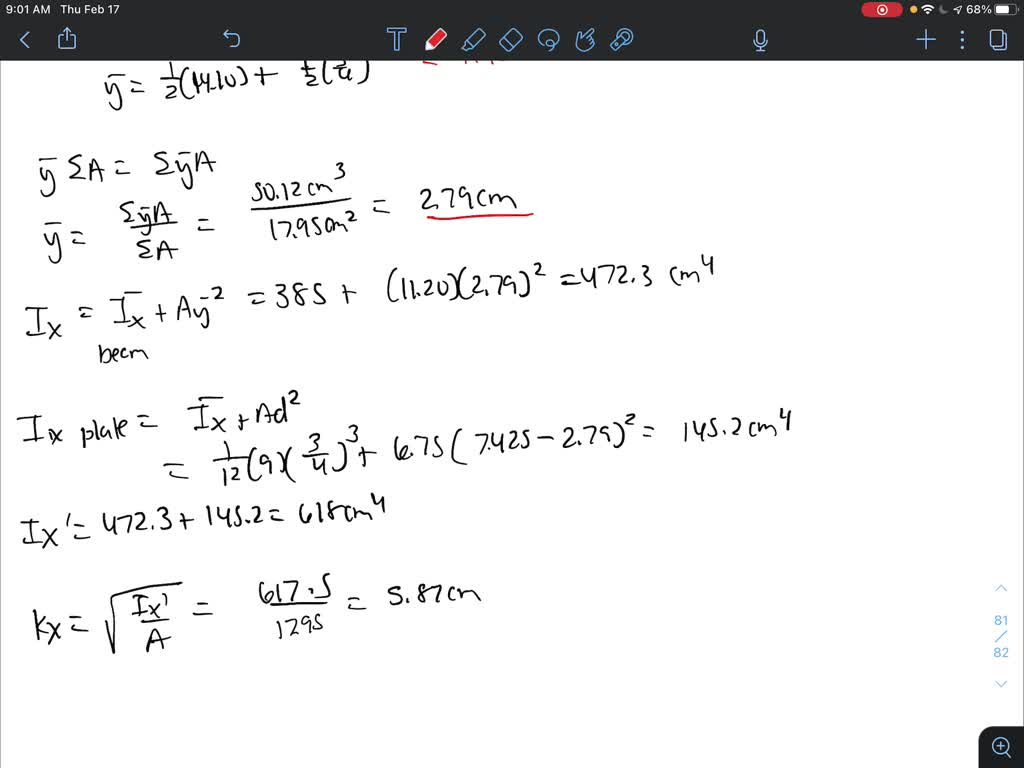 9:01 AM Thu Feb 17 68%
ȳ = 1/2(14.10) + 1/2(3/4)
ȳ ΣA = ΣȳA
ȳ = ΣȳA/ΣA = 50.12 cm³/17.95 cm² = 2.79 cm
Ix = Īx + Aȳ² = 385 + (11.20)(2.79)² = 472.3 cm⁴
beam
Ix plate = Īx + Ad²
= 1/12 (9)(3/4)³ + 6.75 (7.425 - 2.79)² = 145.2 cm⁴
Ix' = 472.3 + 145.2 = 618 cm⁴
Kx = √(Ix'/A) = 617.5/1795 = 5.87 cm
81
/
82